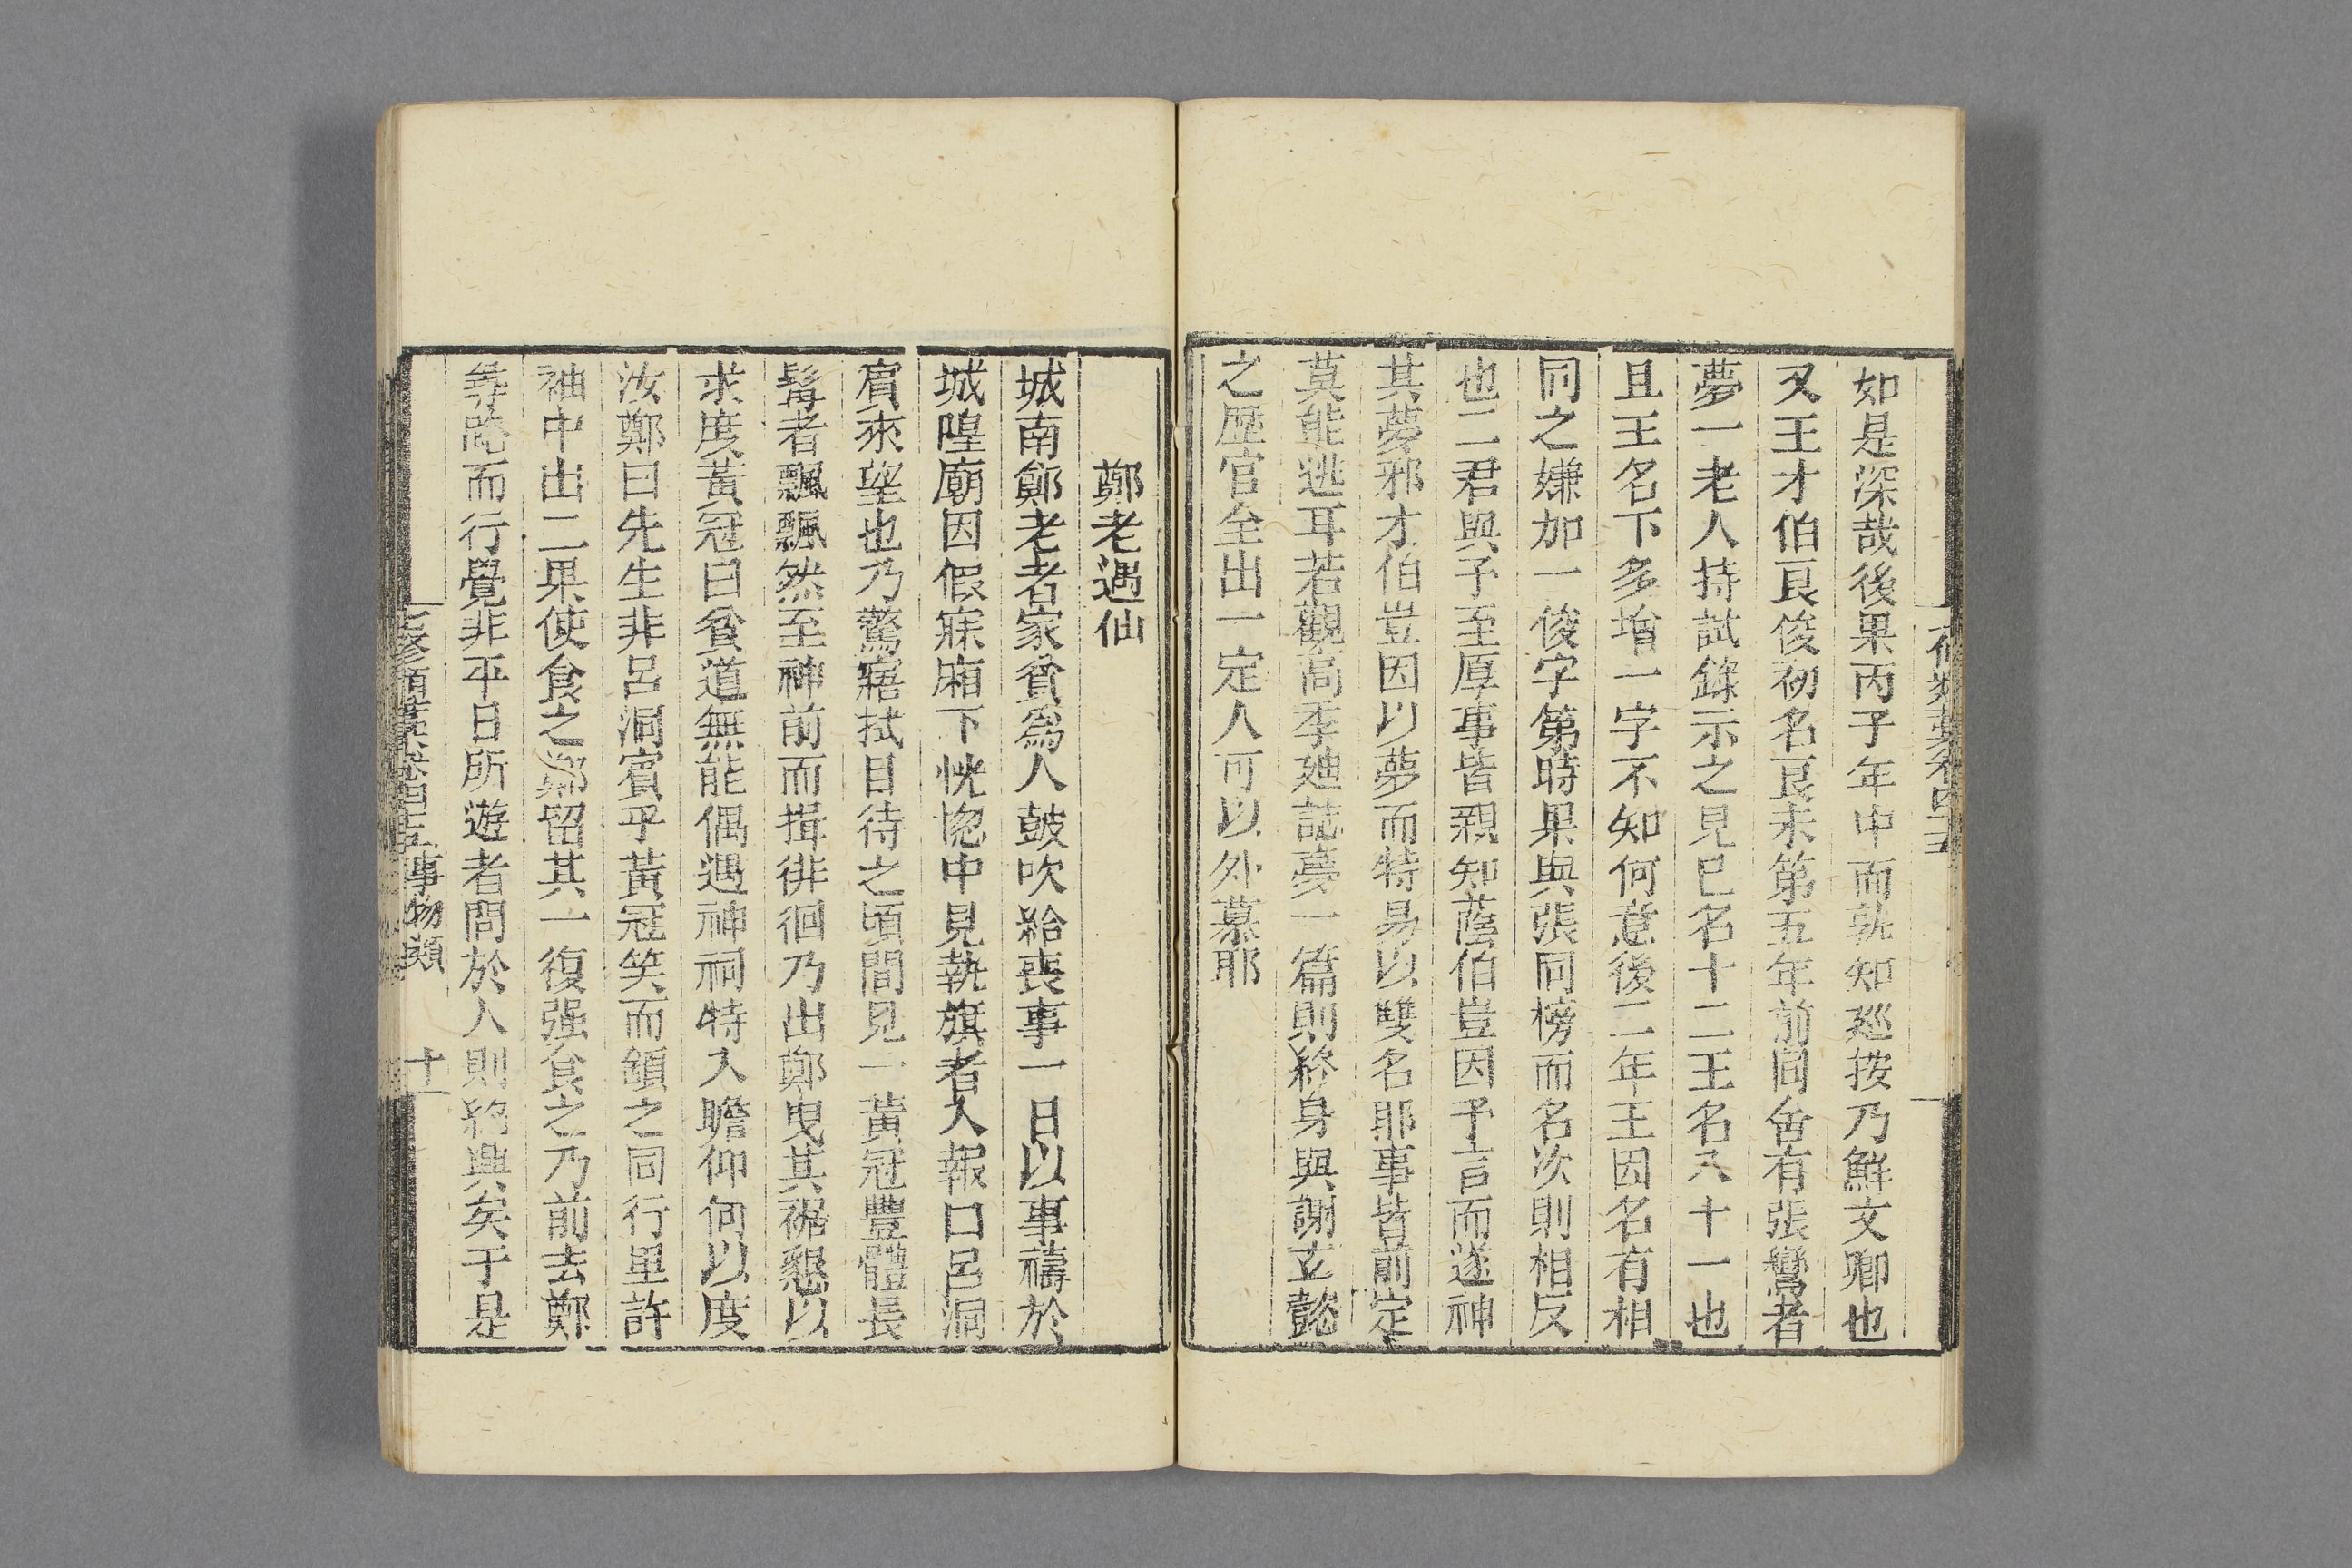 如是深哉後果丙子年中而孰知廵按乃鮮文卿也
又王才伯艮俊初名艮未第五年前同舍有張鸞者
夢一老人持試錄示之見巳名十二王名六十一也
且王名下多增一字不知何意後二年王因名有相
同之嫌加一俊字第時果與張同榜而名次則相反
也二君與予至厚事皆親知蔭伯豈因予言而遂神
其夢邪才伯豈因以夢而特易以雙名耶事皆前定
莫能逃耳若觀高季廸誌夢一篇則終身與謝玄懿
之歷官全出一定人可以外慕耶
鄭老遇仙
城南鄭老者家貧爲人鼓吹給喪事一日以事禱於
城隍廟因假寐廂下恍惚中見執旗者入報曰呂洞
賓來望也乃驚寤拭目待之頃間見一黃冠豐體長
髯者飄飄然至神前而揖徘徊乃出鄭曳其裾懇以
求度黃冠曰貧道無能偶遇神祠特入瞻仰何以度
汝鄭曰先生非呂洞賓乎黃冠笑而頷之同行里許
袖中出二果使食之鄭留其一復强食之乃前去鄭
尋路而行覺非平日所遊者問於人則紹興矣于是
七修類藁卷四十五 事物類 十一